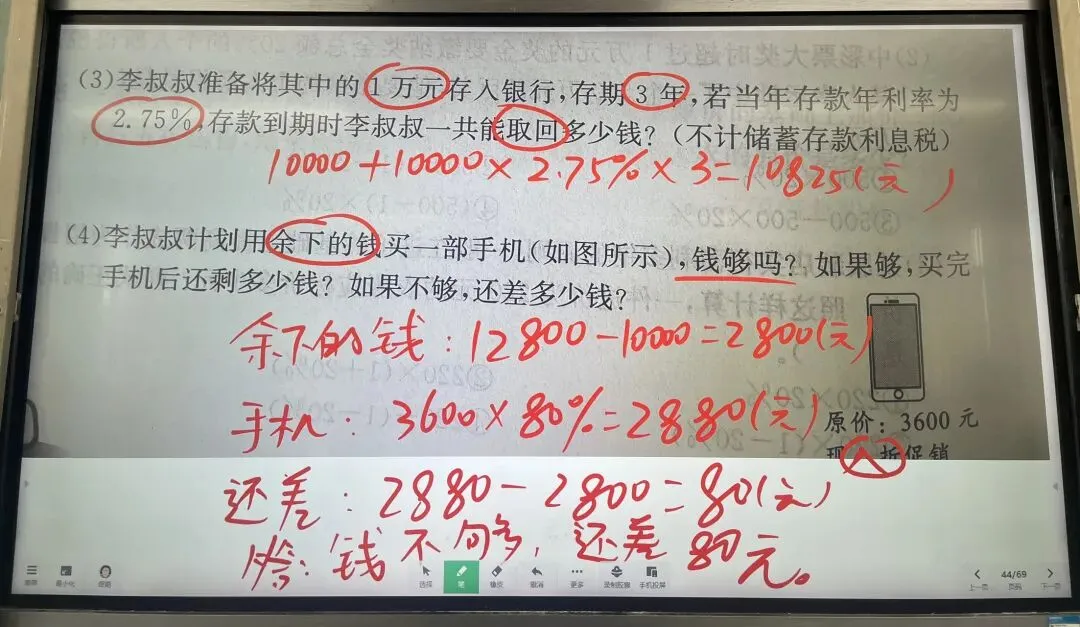 (3)李叔叔准备将其中的1万元存入银行,存期3年,若当年存款年利率为
2.75%,存款到期时李叔叔一共能取回多少钱?(不计储蓄存款利息税)
10000+10000×2.75%×3=10825(元)
(4)李叔叔计划用余下的钱买一部手机(如图所示),钱够吗?如果够,买完
手机后还剩多少钱?如果不够,还差多少钱?
余下的钱:12800-10000=2800(元)
手机:3600×80%=2880(元)
原价:3600元
现八折促销
还差:2880-2800=80(元)
答:钱不够,还差80元。
选择 笔 橡皮 撤消 更多 录制胶囊 手机投屏
最小化
44/69
上一页 页码 下一页